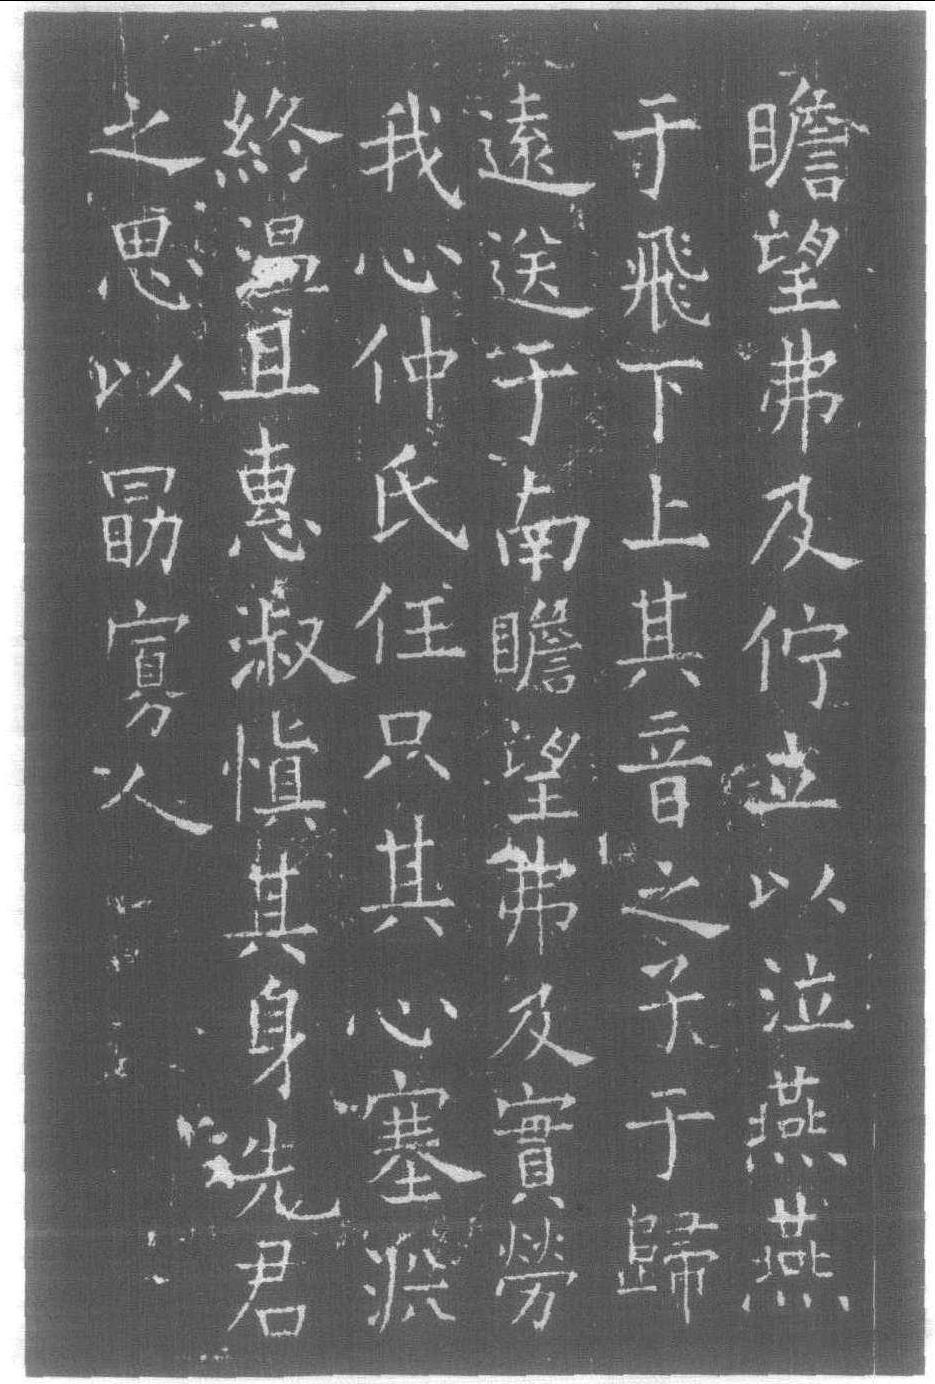 瞻望弗及佇立以泣燕燕
于飛下上其音之子于歸
遠送于南瞻望弗及實勞
我心仲氏任只其心塞淵
終温且惠淑慎其身先君
之思以勗寡人